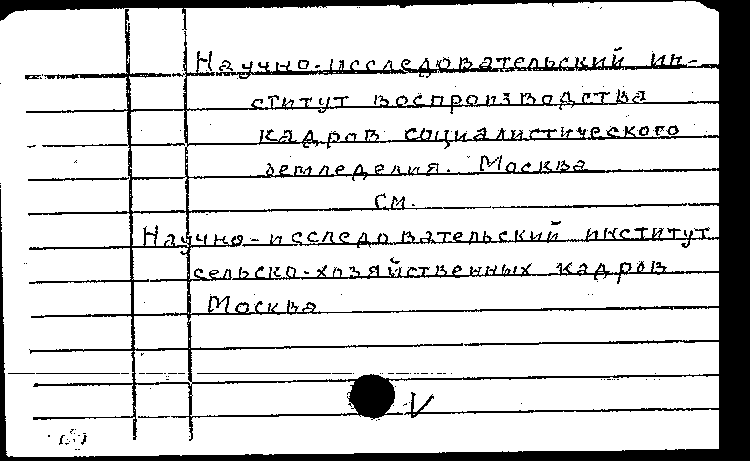 Научно-исследовательский ин-
ститут воспроизводства
кадров социалистического
земледелия. Москва
См.
Научно-исследовательский институт
сельско-хозяйственных кадров
Москва
V